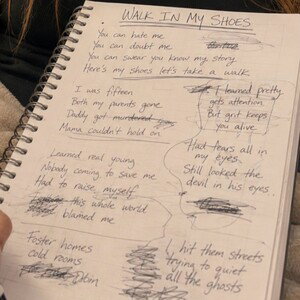 WALK IN MY SHOES
You can hate me
You can doubt me
You can swear you know my story
Here's my shoes let's take a walk
I was fifteen
Both my parents gone
Daddy got murdered
Mama couldn't hold on
I learned pretty
gets attention
But grit keeps
you alive
Learned real young
Nobody coming to save me
Had to raise myself
this whole world
blamed me
Had tears all in
my eyes
Still looked the
devil in his eyes
Foster homes
cold rooms
I hit them streets
trying to quiet
all the ghosts